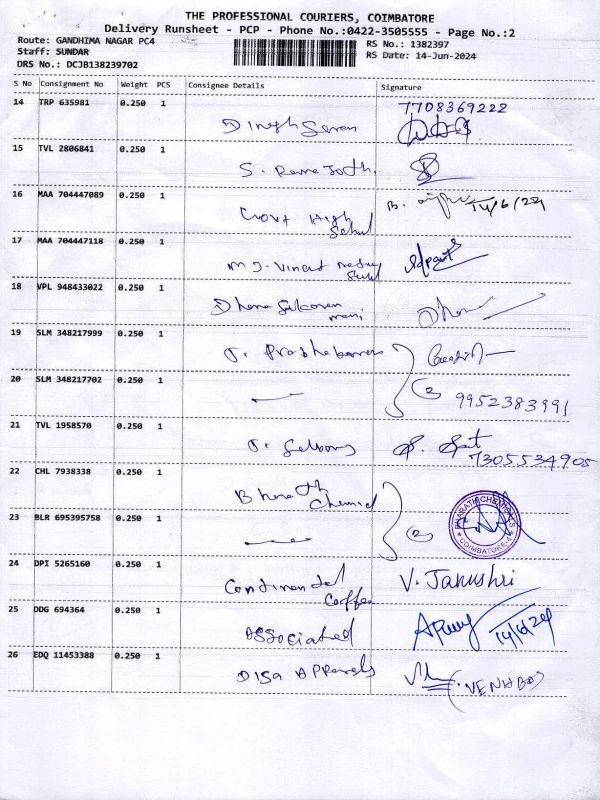 THE PROFESSIONAL COURIERS, COIMBATORE
Delivery Runsheet - PCP - Phone No.:0422-3505555 - Page No.:2
Route: GANDHIMA NAGAR PC4
RS No.: 1382397
Staff: SUNDAR
RS Date: 14-Jun-2024
DRS No.: DCJB138239702
S No Consignment No Weight PCS Consignee Details Signature
14 TRP 635981 0.250 1 7708369222
15 TVL 2806841 0.250 1 S.
16 MAA 704447089 0.250 1 Govt High B. 14/6/24
17 MAA 704447118 0.250 1 M J.
18 VPL 948433022 0.250 1
19 SLM 348217999 0.250 1
20 SLM 348217702 0.250 1 2 9952383991
21 TVL 1958570 0.250 1 7305534905
22 CHL 7938338 0.250 1 Bharath
Chemical
BHARATH CHEMICALS
COIMBATORE
23 BLR 695395758 0.250 1 2
24 DPI 5265160 0.250 1 Continental V. Janushri
Coffee
25 DDG 694364 0.250 1 Associated 14/6/24
26 EDQ 11453388 0.250 1 Disa Apparels